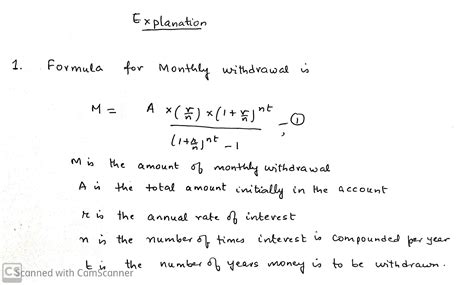 Explanation
1. Formula for Monthly withdrawal is
M = A × (r/n) × (1 + r/n)^nt
(1 + r/n)^nt - 1 - ①
M is the amount of monthly withdrawal
A is the total amount initially in the account
r is the annual rate of interest
n is the number of times interest is compounded per year
t is the number of years money is to be withdrawn.
CS Scanned with CamScanner